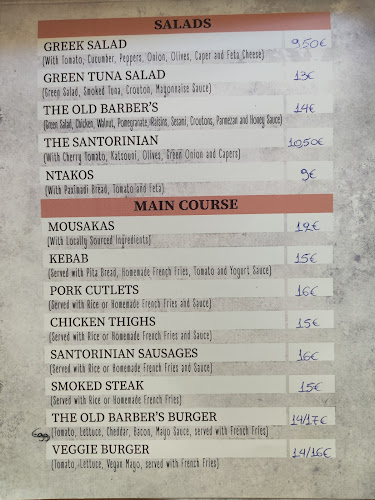 SALADS
GREEK SALAD 9,50€
(With Tomato, Cucumber, Peppers, Onion, Olives, Caper and Feta Cheese)
GREEN TUNA SALAD 13€
(Green Salad, Smoked Tuna, Crouton, Mayonnaise Sauce)
THE OLD BARBER'S 14€
(Green Salad, Chicken, Walnut, Pomegranate, Raisins, Sesami, Croutons, Parmezan and Honey Sauce)
THE SANTORINIAN 10,50€
(With Cherry Tomato, Katsouni, Olives, Green Onion and Capers)
NTAKOS 9€
(With Paximadi Bread, Tomato and Feta)
MAIN COURSE
MOUSAKAS 12€
(With Locally Sourced Ingredients)
KEBAB 15€
(Served with Pita Bread, Homemade French Fries, Tomato and Yogurt Sauce)
PORK CUTLETS 16€
(Served with Rice or Homemade French Fries and Sauce)
CHICKEN THIGHS 15€
(Served with Rice or Homemade French Fries and Sauce)
SANTORINIAN SAUSAGES 16€
(Served with Rice or Homemade French Fries and Sauce)
SMOKED STEAK 15€
(Served with Rice or Homemade French Fries)
THE OLD BARBER'S BURGER 14/17€
Egg, (Tomato, Lettuce, Cheddar, Bacon, Mayo Sauce, served with French Fries)
VEGGIE BURGER 14/16€
(Tomato, Lettuce, Vegan Mayo, served with French Fries)